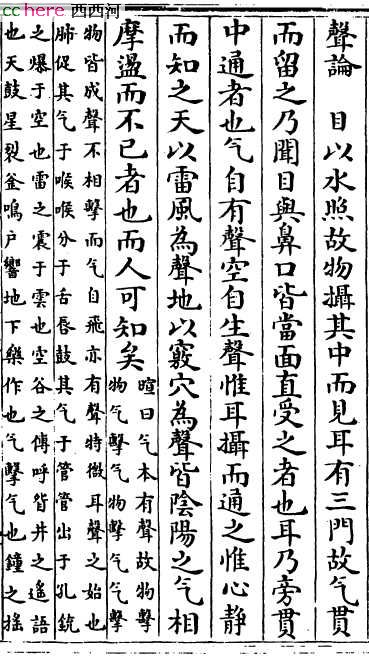 cchere 西西河
聲論　目以水照故物攝其中而見耳有三門故气貫
而留之乃聞目與鼻口皆當面直受之者也耳乃旁貫
中通者也气自有聲空自生聲惟耳攝而通之惟心靜
而知之天以雷風為聲地以竅穴為聲皆陰陽之气相
摩盪而不已者也而人可知矣
暄曰气本有聲故物擊
物气擊气物擊气气擊
物皆成聲不相擊而气自飛亦有聲特微耳聲之始也
肺促其气于喉喉分于舌唇鼓其气于管管出于孔銃
之爆于空也雷之震于雲也空谷之傳呼眢井之遙語
也天鼓星裂釜鳴戶響地下樂作也气擊气也鐘之搖